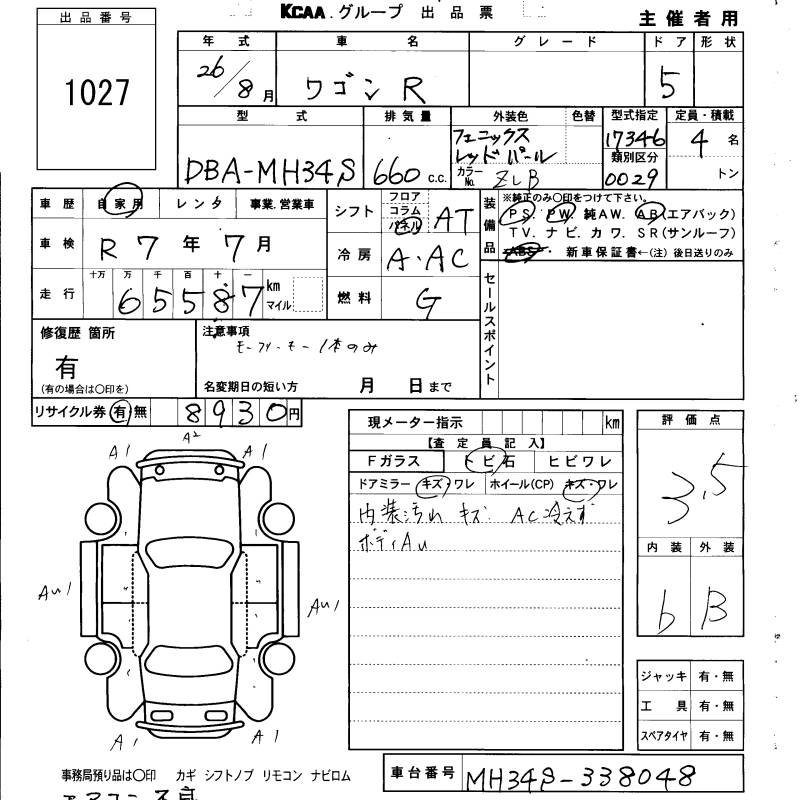 KCAA.グループ 出品票
主催者用
出品番号
1027
年式 車名 グレード ドア 形状
26/8月 ワゴンR 5
型式 排気量 外装色 色替 型式指定 定員・積載
DBA-MH34S 660 c.c. フェニックス レッドパール 17346 4名
カラーNo. ZLB 類別区分 0029 トン
車歴 自家用 レンタ 事業.営業車
シフト フロア コラム パネル AT
装備品 ※純正のみ〇印をつけて下さい。
PS. PW. 純AW. AB(エアバック)
TV. ナビ. カワ. SR(サンルーフ)
ABS. 新車保証書←(注) 後日送りのみ
車検 R7年7月
冷房 A・AC
走行 十万 万 千 百 十 一
65587 km マイル
燃料 G
セールスポイント
修復歴 箇所
有
(有の場合は〇印を)
注意事項
名変期日の短い方 月 日まで
リサイクル券 有 無 8930円
現メーター指示 km
【査定員記入】
Fガラス トビ石 ヒビワレ
ドアミラー キズ・ワレ ホイール(CP) キズ・ワレ
内装汚れ キズ AC冷えず
ボディAu
評価点
3.5
内装 外装
b B
A1 A2 A1
Au1 Au1
A1 A1
ジャッキ 有・無
工具 有・無
スペアタイヤ 有・無
事務局預り品は〇印 カギ シフトノブ リモコン ナビロム
車台番号 MH34S-338048
エアコン不良